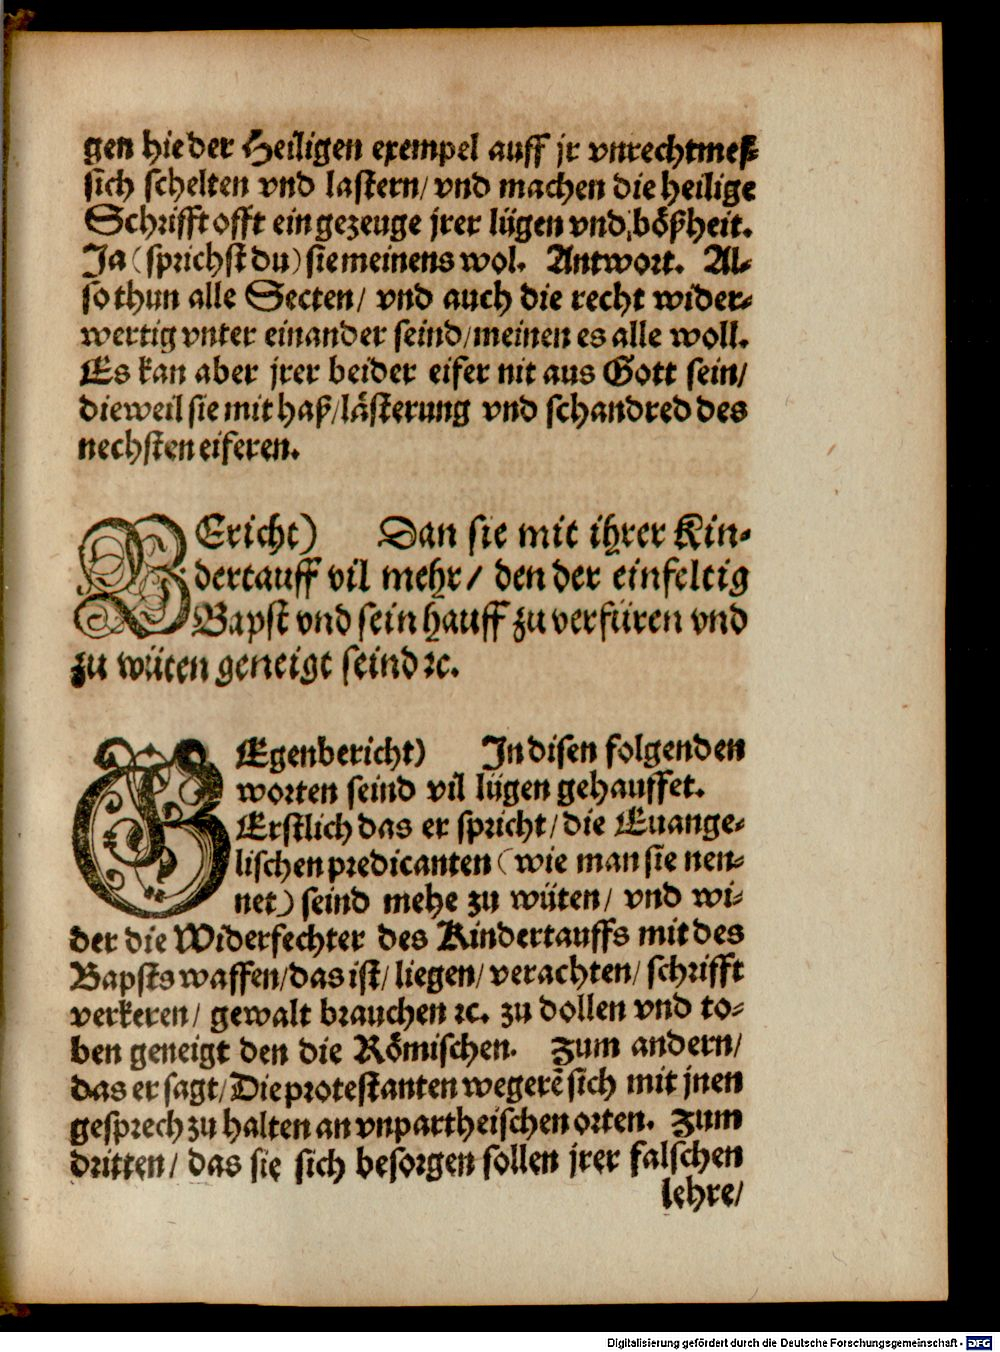 gen hie der Heiligen exempel auff jr vnrechtmeß-
sich schelten vnd lastern/ vnd machen die heilige
Schrifft offt ein gezeuge jrer lügen vnd bößheit.
Ja (sprichst du) sie meinens wol. Antwort. Al-
so thun alle Secten/ vnd auch die recht wider-
wertig vnter einander seind/ meinen es alle woll.
Es kan aber jrer beider eifer nit aus Gott sein/
dieweil sie mit haß/ lästerung vnd schandred des
nechsten eiferen.
BEricht) Dan sie mit ihrer Kin-
dertauff vil mehr/ den der einfeltig
Bapst vnd sein hauff zu verfüren vnd
zu wüten geneigt seind ꝛc.
GEgenbericht) In disen folgenden
worten seind vil lügen gehauffet.
Erstlich das er spricht/ die Euange-
lischen predicanten (wie man sie nen-
net) seind mehe zu wüten/ vnd wi-
der die Widerfechter des Kindertauffs mit des
Bapsts waffen/ das ist/ liegen/ verachten/ schrifft
verkeren/ gewalt brauchen ꝛc. zu dollen vnd to-
ben geneigt den die Römischen. Zum andern/
das er sagt/ Die protestanten wegerē sich mit jnen
gesprech zu halten an vnpartheischen orten. Zum
dritten/ das sie sich besorgen sollen jrer falschen
lehre/
Digitalisierung gefördert durch die Deutsche Forschungsgemeinschaft - DFG